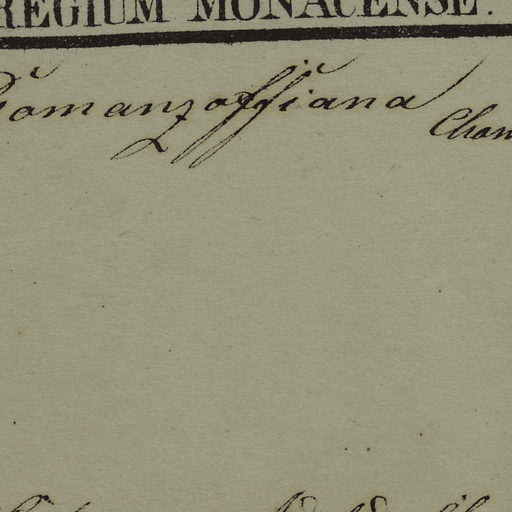 REGIUM MONACENSE.
Romanzoffiana Cham